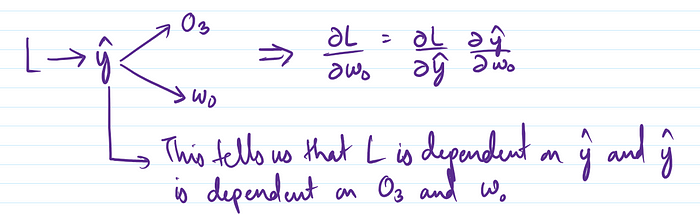 L → ŷ → O₃
→ w₀
⇒ ∂L/∂w₀ = ∂L/∂ŷ ∂ŷ/∂w₀
→ This tells us that L is dependent on ŷ and ŷ
is dependent on O₃ and w₀